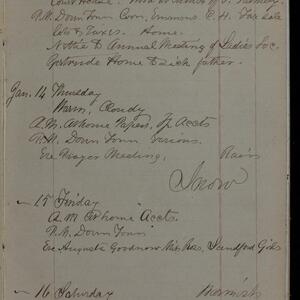 Court House.
P.M. Down Town Corn, C. H. Tax sale
Lots & Taxes. Home.
Notice to Annual Meeting of Ladies Soc.
Gertrude Home to Sick father.
Jan. 14 Thursday
Warm, Cloudy
A.M. At home Papers, of Accts
P.M. Down Town various.
Eve Prayer Meeting, Rain
Snow
" 15 Friday
A.M. At home Accts.
P.M. Down Town
Eve Augusta Goodnow, Sandford Girls
" 16 Saturday